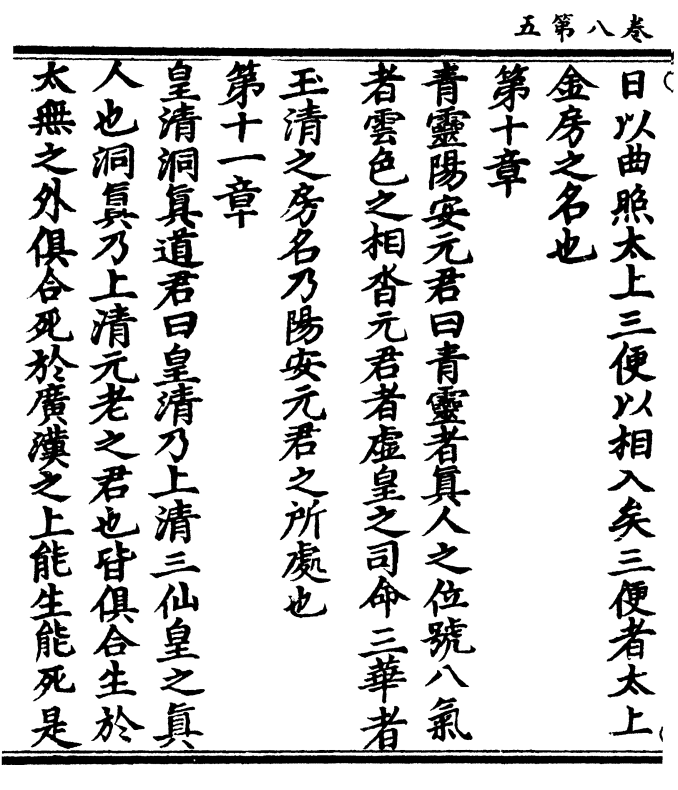 卷八第五
日以曲照太上三便以相入矣三便者太上
金房之名也
第十章
青靈陽安元君曰青靈者眞人之位號八氣
者雲色之相沓元君者虛皇之司命三華者
玉清之房名乃陽安元君之所處也
第十一章
皇清洞眞道君曰皇清乃上清三仙皇之眞
人也洞眞乃上清元老之君也皆俱合生於
太無之外俱合死於廣漢之上能生能死是